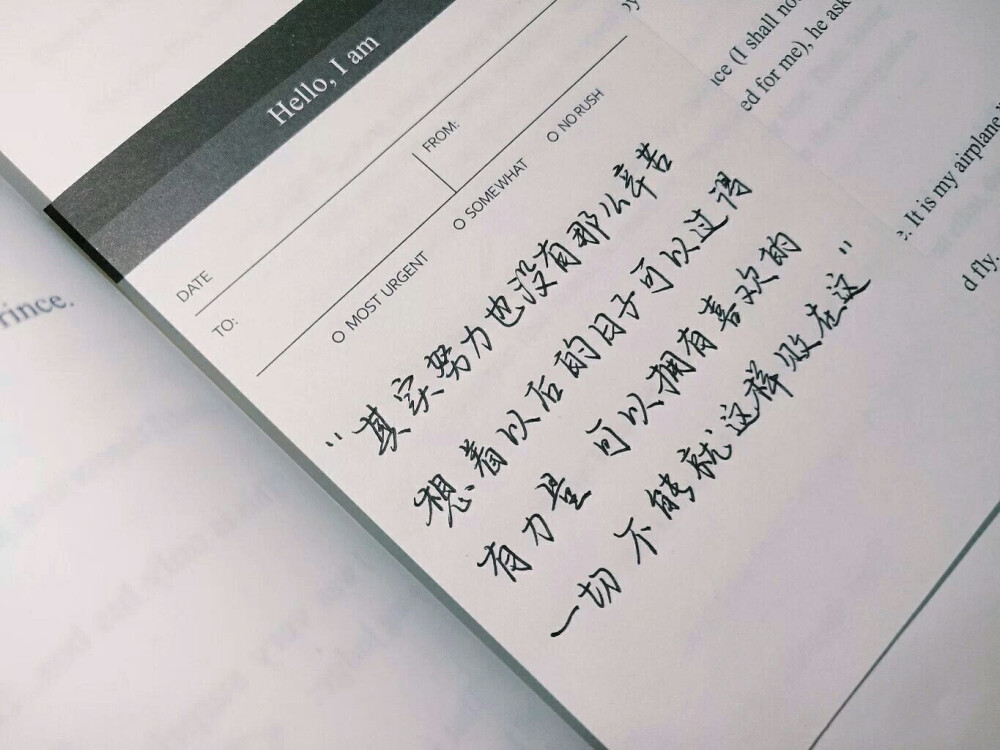 Hello, I am
DATE
FROM:
TO:
MOST URGENT
SOMEWHAT
NO RUSH
"其实努力也没有那么辛苦
想着以后的日子可以过得
有力量 可以拥有喜欢的
一切 不能就这样败在这"
rince.
ice (I shall not
ed for me), he ask
e. It is my airplane
d fly.